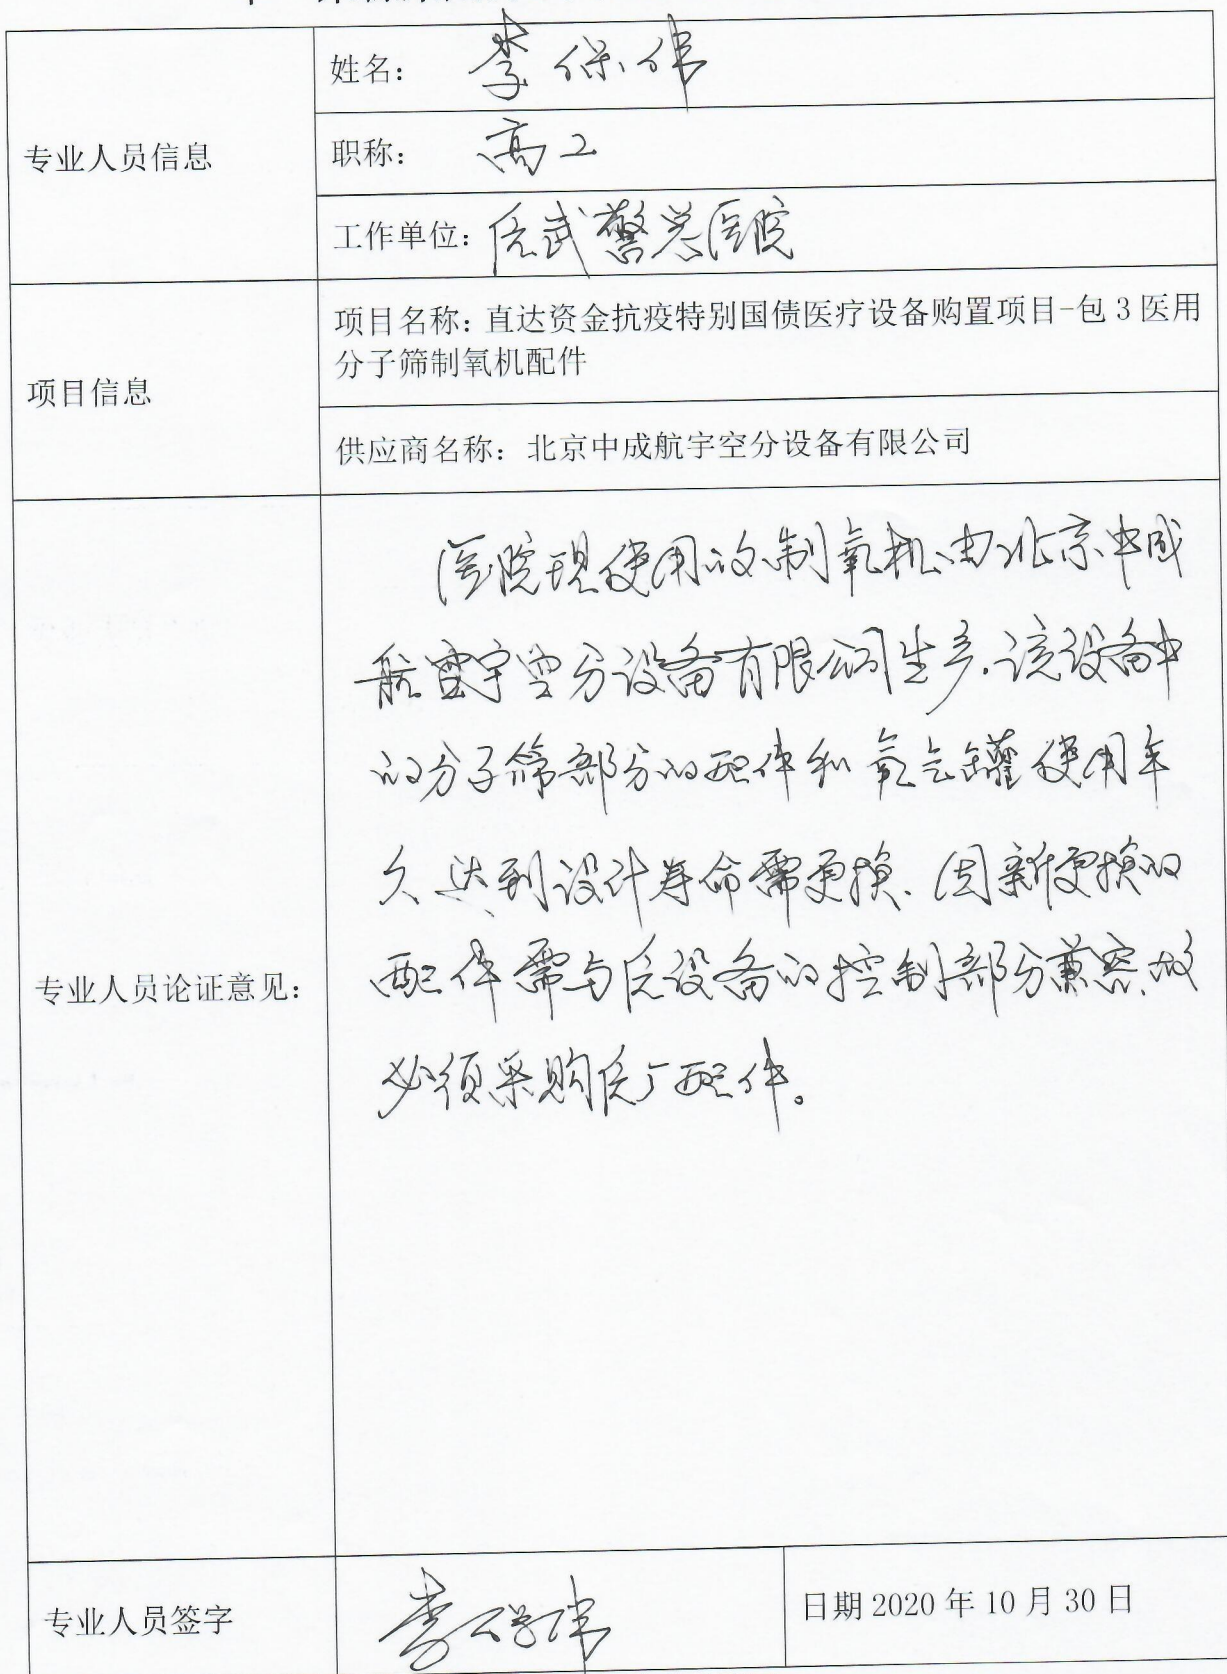 专业人员信息
姓名： 李保伟
职称： 高工
工作单位：原武警总医院
项目信息
项目名称：直达资金抗疫特别国债医疗设备购置项目-包 3 医用
分子筛制氧机配件
供应商名称：北京中成航宇空分设备有限公司
专业人员论证意见：
医院现使用的制氧机由北京中成
航宇空分设备有限公司生产.该设备中
的分子筛部分的配件和氧气罐使用年
久达到设计寿命需更换、因新更换的
配件需与原设备的控制部分兼容.故
必须采购原厂配件。
专业人员签字
日期 2020 年 10 月 30 日